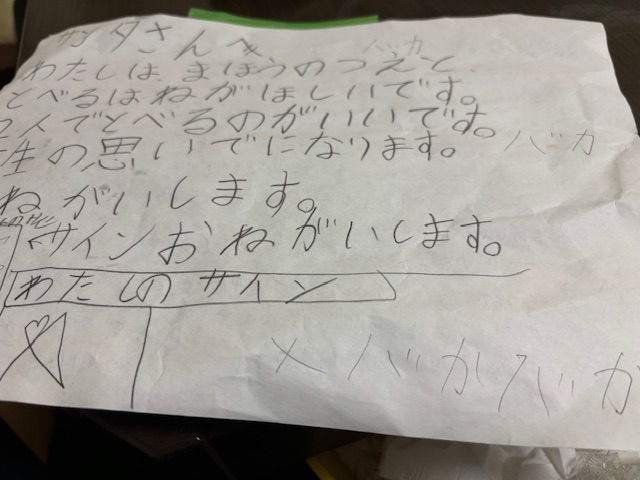 サンタさんへ バカ
わたしは、まほうのつえと、
とべるはねがほしいです。
2人でとべるのがいいです。
生の思いでになります。 バカ
ねがいします。
サインおねがいします。
わたしのサイン
×バカバカ